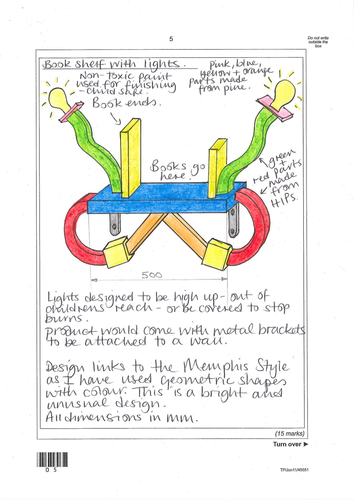 5
Do not write
outside the
box
Book shelf with lights.
Non-toxic paint
used for finishing
- child safe.
pink, blue,
yellow + orange
parts made
from pine.
Book ends.
Books go
here.
green
+
red parts
made
from
HIPs.
500
Lights designed to be high up - out of
childrens reach - or be covered to stop
burns.
Product would come with metal brackets
to be attached to a wall.
Design links to the Memphis Style
as I have used geometric shapes
with colour. This is a bright and
unusual design.
All dimensions in mm.
(15 marks)
Turn over ►
0 5